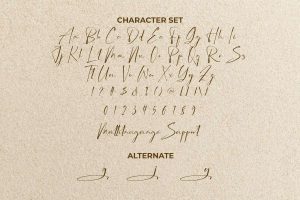 CHARACTER SET
Aa Bb Cc Dd Ee Ff Gg Hh Ii
Jj Kk Ll Mm Nn Oo Pp Qq Rr Ss
Tt Uu Vv Ww Xx Yy Zz
0 1 2 3 4 5 6 7 8 9
Multilanguage Support
ALTERNATE